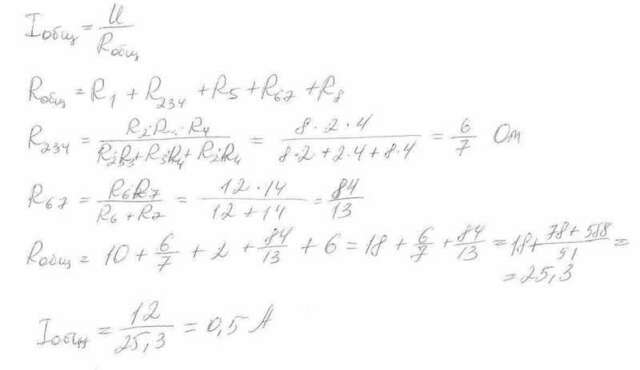 Iобщ = U / Rобщ
Rобщ = R1 + R234 + R5 + R67 + R8
R234 = R2·R3·R4 / R2R3+R3R4+R2R4 = 8·2·4 / 8·2+2·4+8·4 = 6/7 Ом
R67 = R6·R7 / R6+R7 = 12·14 / 12+14 = 84/13
Rобщ = 10 + 6/7 + 2 + 84/13 + 6 = 18 + 6/7 + 84/13 = 18 + 78+588 / 91 =
= 25,3
Iобщ = 12 / 25,3 = 0,5 А